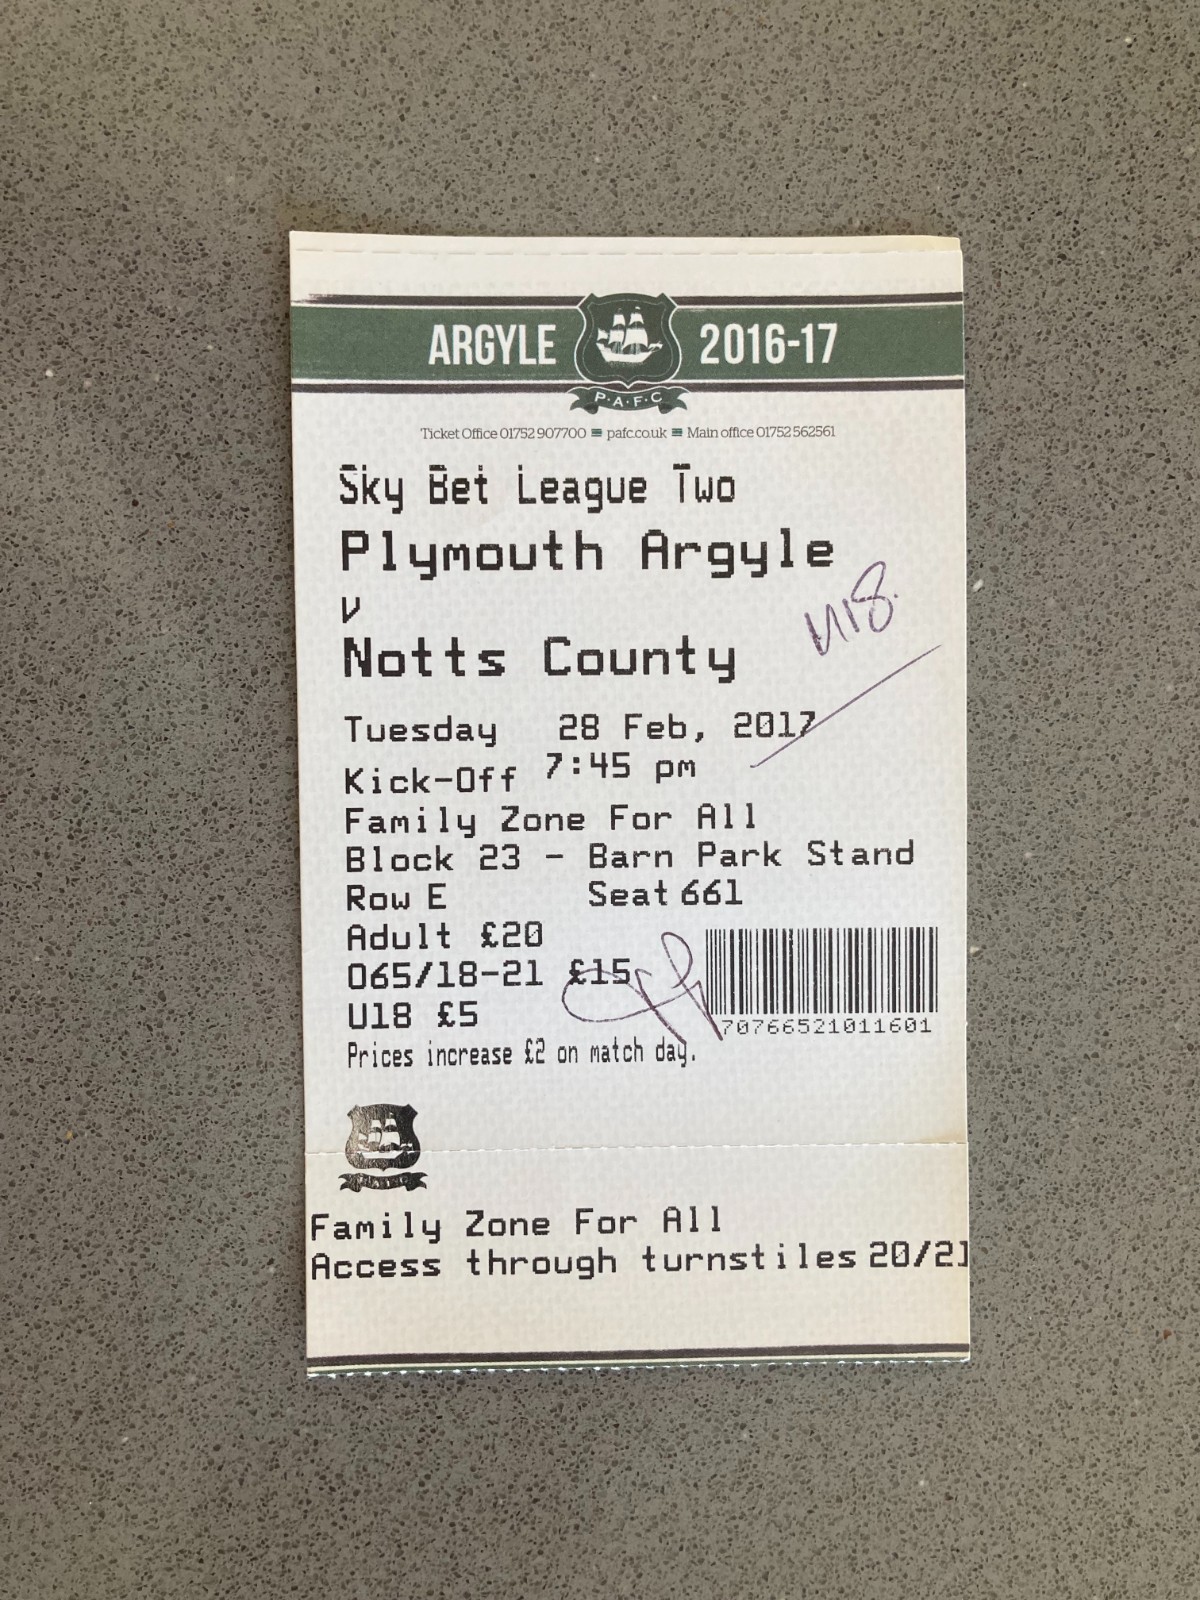 ARGYLE 2016-17
P·A·F·C
Ticket Office 01752 907700 pafc.co.uk Main office 01752 562561
Sky Bet League Two
Plymouth Argyle
v
U18.
Notts County
Tuesday 28 Feb, 2017
Kick-Off 7:45 pm
Family Zone For All
Block 23 - Barn Park Stand
Row E Seat 661
Adult £20
O65/18-21 £15
U18 £5
70766521011601
Prices increase £2 on match day.
Family Zone For All
Access through turnstiles 20/21